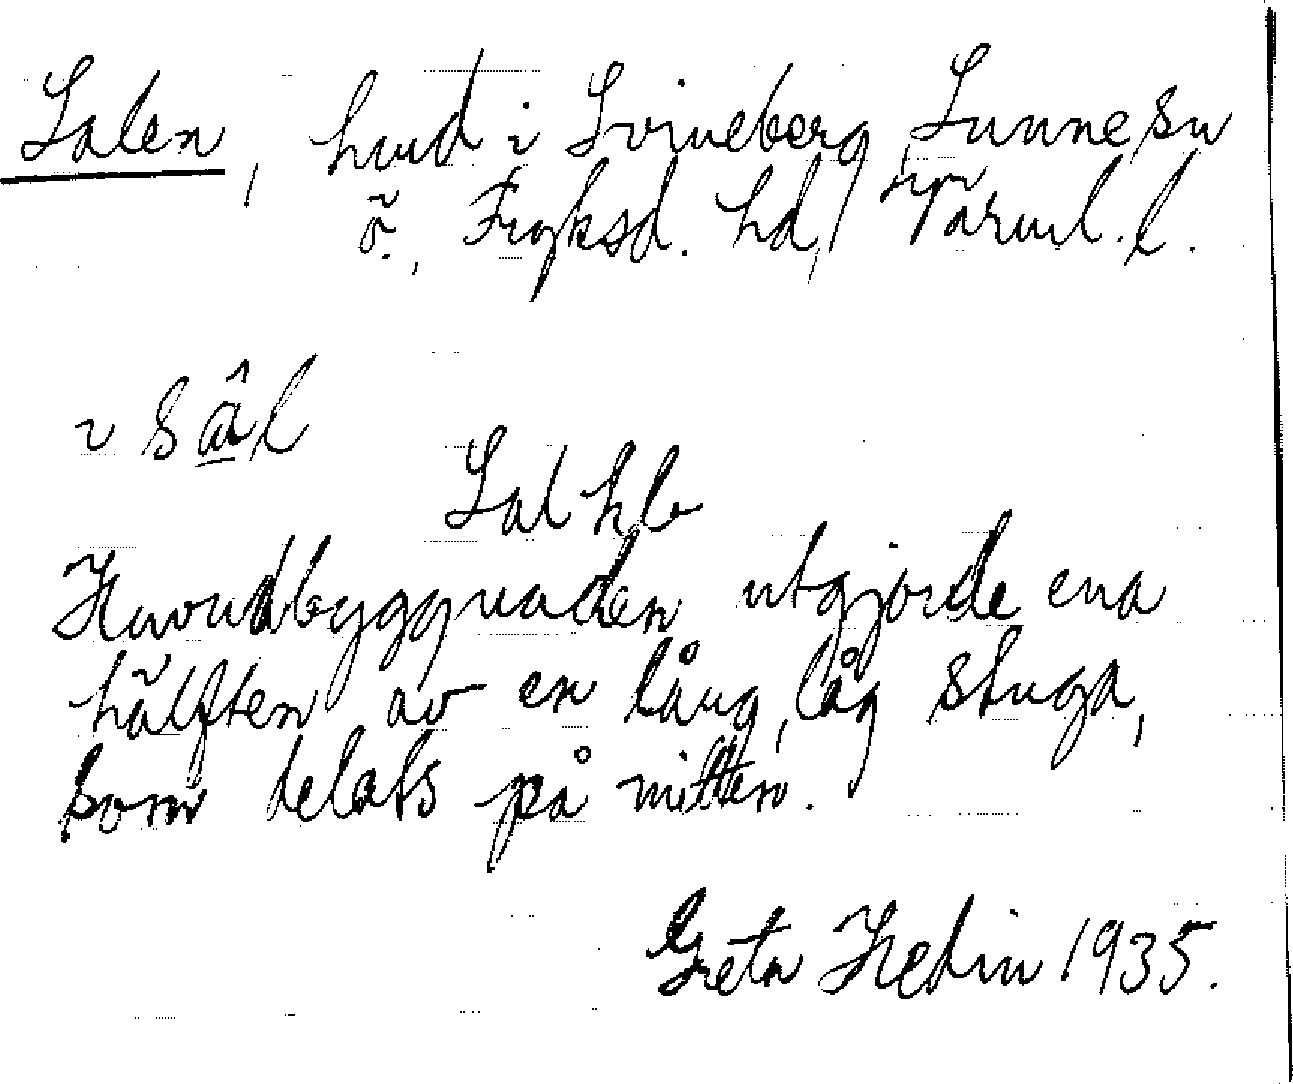 Salen, hmd i Svineberg, Sunne sn
ö., Fryksd. hd, Värml. l.
i sâl
Huvudbyggnaden utgjorde ena
hälften av en lång, låg stuga,
som delats på mitten.
Greta Hedin 1935.